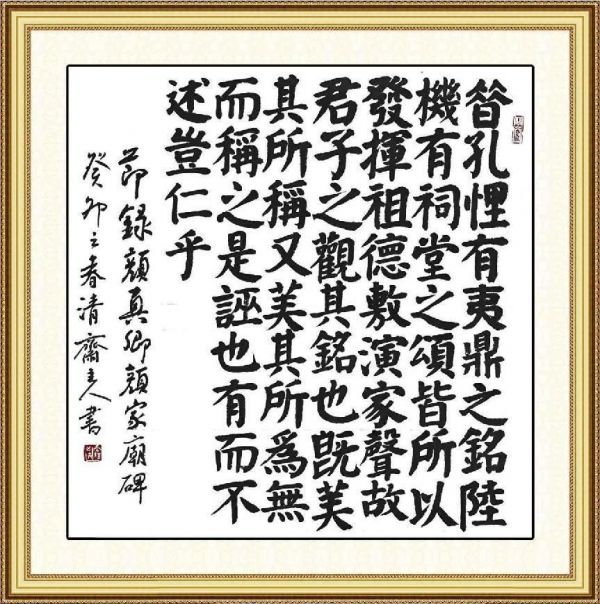 昝孔悝有夷鼎之銘陸
機有祠堂之頌皆所以
發揮祖德敷演家聲故
君子之觀其銘也既美
其所稱又美其所為無
而稱之是誣也有而不
述豈仁乎
節録顏真卿顏家廟碑
癸卯之春清齋主人書